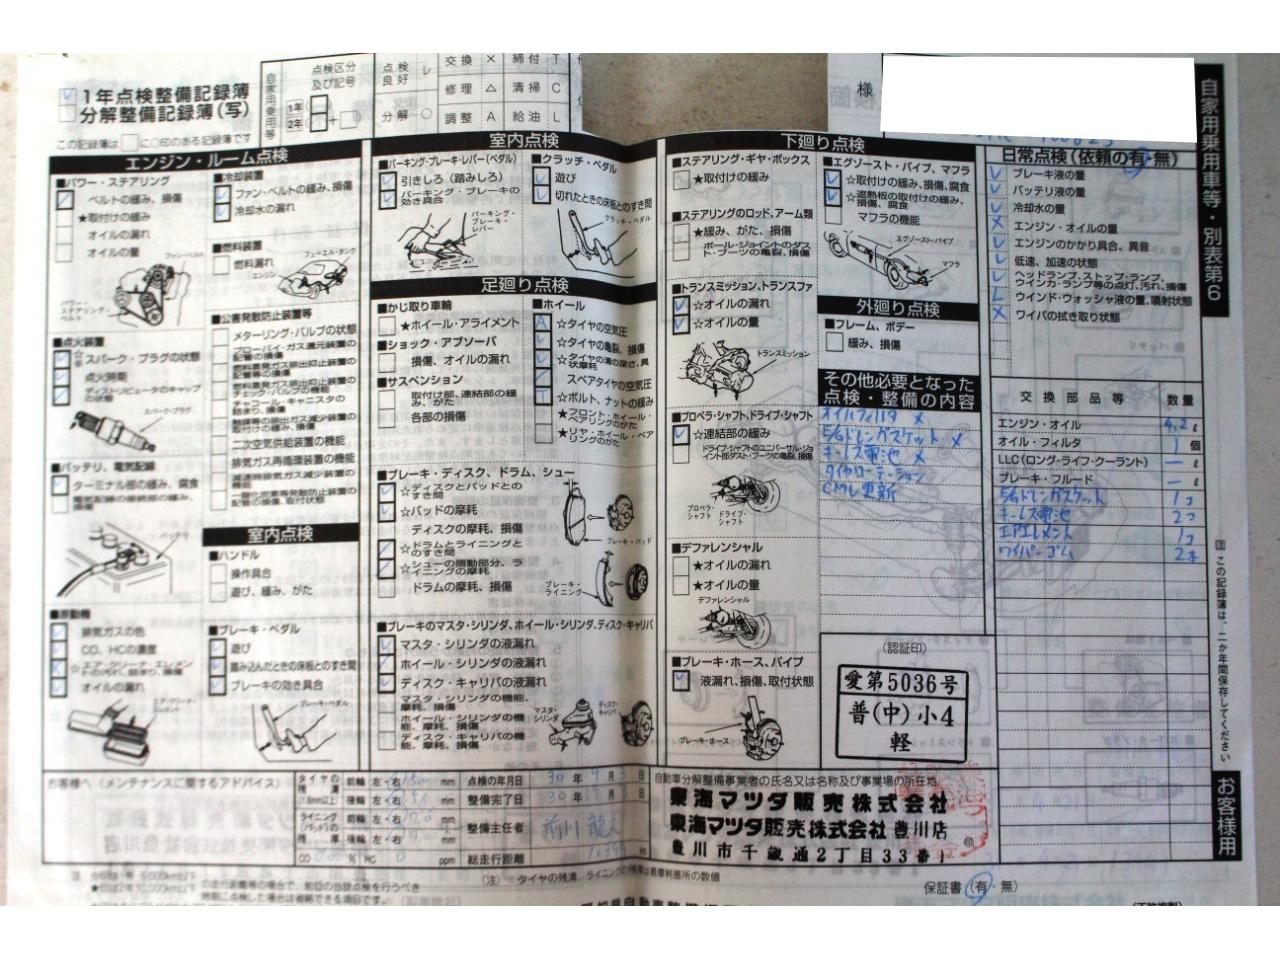 1年点検整備記録簿
分解整備記録簿(写)
この記録簿は□に○印のある記録簿です
自家用乗用等
点検区分
及び記号
1年
2年
点検良好 レ
分解 ○
交換 ×
修理 △
調整 A
締付 T
清掃 C
給油 L
様
自家用乗用車等・別表第6
エンジン・ルーム点検
■パワー・ステアリング
ベルトの緩み、損傷
★取付けの緩み
オイルの漏れ
オイルの量
ファン・ベルト
パワー・ステアリング・ベルト
■点火装置
スパーク・プラグの状態
点火時期
ディストリビュータのキャップの状態
スパーク・プラグ
■バッテリ、電気配線
ターミナル部の緩み、腐食
電気配線の接続部の緩み、損傷
バッテリ
■原動機
排気ガスの色
CO、HCの濃度
☆エア・クリーナ・エレメントの汚れ、詰まり、損傷
オイルの漏れ
エア・クリーナ・エレメント
■冷却装置
ファン・ベルトの緩み、損傷
冷却水の漏れ
■燃料装置
燃料漏れ
フューエル・タンク
エンジン
■公害発散防止装置等
メターリング・バルブの状態
ブローバイ・ガス還元装置の配管の損傷
燃料蒸発ガス排出抑止装置の配管等の損傷
燃料蒸発ガス排出抑止装置のチェック・バルブの機能
チャコール・キャニスタの詰まり、損傷
触媒等の排出ガス減少装置の取付けの緩み、損傷
二次空気供給装置の機能
排気ガス再循環装置の機能
減速時排気ガス減少装置の機能
一酸化炭素等発散防止装置の配管の損傷、取付状態
室内点検
■ハンドル
操作具合
遊び、緩み、がた
■ブレーキ・ペダル
遊び
踏み込んだときの床板とのすき間
ブレーキの効き具合
ブレーキ・ペダル
室内点検
■パーキング・ブレーキ・レバー(ペダル)
引きしろ(踏みしろ)
パーキング・ブレーキの効き具合
パーキング・ブレーキ・レバー
■クラッチ・ペダル
遊び
切れたときの床板とのすき間
クラッチ・ペダル
足廻り点検
■かじ取り車輪
★ホイール・アライメント
■ショック・アブソーバ
損傷、オイルの漏れ
■サスペンション
取付け部、連結部の緩み、がた
各部の損傷
■ホイール
☆タイヤの空気圧
☆タイヤの亀裂、損傷
☆タイヤの溝の深さ、異状摩耗
スペアタイヤの空気圧
☆ボルト、ナットの緩み
★フロント・ホイール・ベアリングのがた
★リヤ・ホイール・ベアリングのがた
■ブレーキ・ディスク、ドラム、シュー
☆ディスクとパッドとのすき間
☆パッドの摩耗
ディスクの摩耗、損傷
☆ドラムとライニングとのすき間
☆シューの摺動部分、ライニングの摩耗
ドラムの摩耗、損傷
ブレーキ・パッド
ブレーキ・ライニング
■ブレーキのマスタ・シリンダ、ホイール・シリンダ、ディスク・キャリパ
マスタ・シリンダの液漏れ
ホイール・シリンダの液漏れ
ディスク・キャリパの液漏れ
マスタ・シリンダの機能、摩耗、損傷
ホイール・シリンダの機能、摩耗、損傷
ディスク・キャリパの機能、摩耗、損傷
マスタ・シリンダ
ディスク・キャリパ
下廻り点検
■ステアリング・ギヤ・ボックス
★取付けの緩み
■ステアリングのロッド、アーム類
★緩み、がた、損傷
ボール・ジョイントのダスト・ブーツの亀裂、損傷
■トランスミッション、トランスファ
☆オイルの漏れ
☆オイルの量
トランスミッション
■プロペラ・シャフト、ドライブ・シャフト
☆連結部の緩み
ドライブ・シャフトのユニバーサル・ジョイント部ダスト・ブーツの亀裂、損傷
プロペラ・シャフト
ドライブ・シャフト
■デファレンシャル
★オイルの漏れ
★オイルの量
デファレンシャル
■ブレーキ・ホース、パイプ
液漏れ、損傷、取付状態
ブレーキ・ホース
■エグゾースト・パイプ、マフラ
☆取付けの緩み、損傷、腐食
☆遮熱板の取付けの緩み、損傷、腐食
マフラの機能
エグゾースト・パイプ
マフラ
外廻り点検
■フレーム、ボデー
緩み、損傷
その他必要となった
点検・整備の内容
オイルフィルタ ×
E/Gドレンガスケット ×
キーレス電池 ×
タイヤローテーション
CMU更新
(認証印)
愛第5036号
普(中)小4
軽
日常点検(依頼の有・無)
ブレーキ液の量
バッテリ液の量
冷却水の量
エンジン・オイルの量
エンジンのかかり具合、異音
低速、加速の状態
ヘッドランプ、ストップ・ランプ、ウインカ・ランプ等の点灯、汚れ、損傷
ウインド・ウォッシャ液の量、噴射状態
ワイパの拭き取り状態
交換部品等 数量
エンジン・オイル 4.2 ℓ
オイル・フィルタ 1 個
LLC(ロング・ライフ・クーラント) — ℓ
ブレーキ・フルード — ℓ
E/Gドレンガスケット 1コ
キーレス電池 2コ
エアエレメント 1コ
ワイパーゴム 2本
注 この記録簿は、二か年間保存してください
お客様用
お客様へ(メンテナンスに関するアドバイス)
タイヤの残溝(1.6mm以上)
前輪 左・右 mm
後輪 左・右 mm
ライニング(パッド)の残厚
前輪 左・右
後輪 左・右
CO % HC 0 ppm
点検の年月日 30年9月3日
整備完了日 30年 月3日
整備主任者 前川
総走行距離 km
自動車分解整備事業者の氏名又は名称及び事業場の所在地
東海マツダ販売株式会社
東海マツダ販売株式会社 豊川店
豊川市千歳通2丁目33番
(注) タイヤの残溝、ライニング
は最摩耗箇所の数値
保証書(有・無)